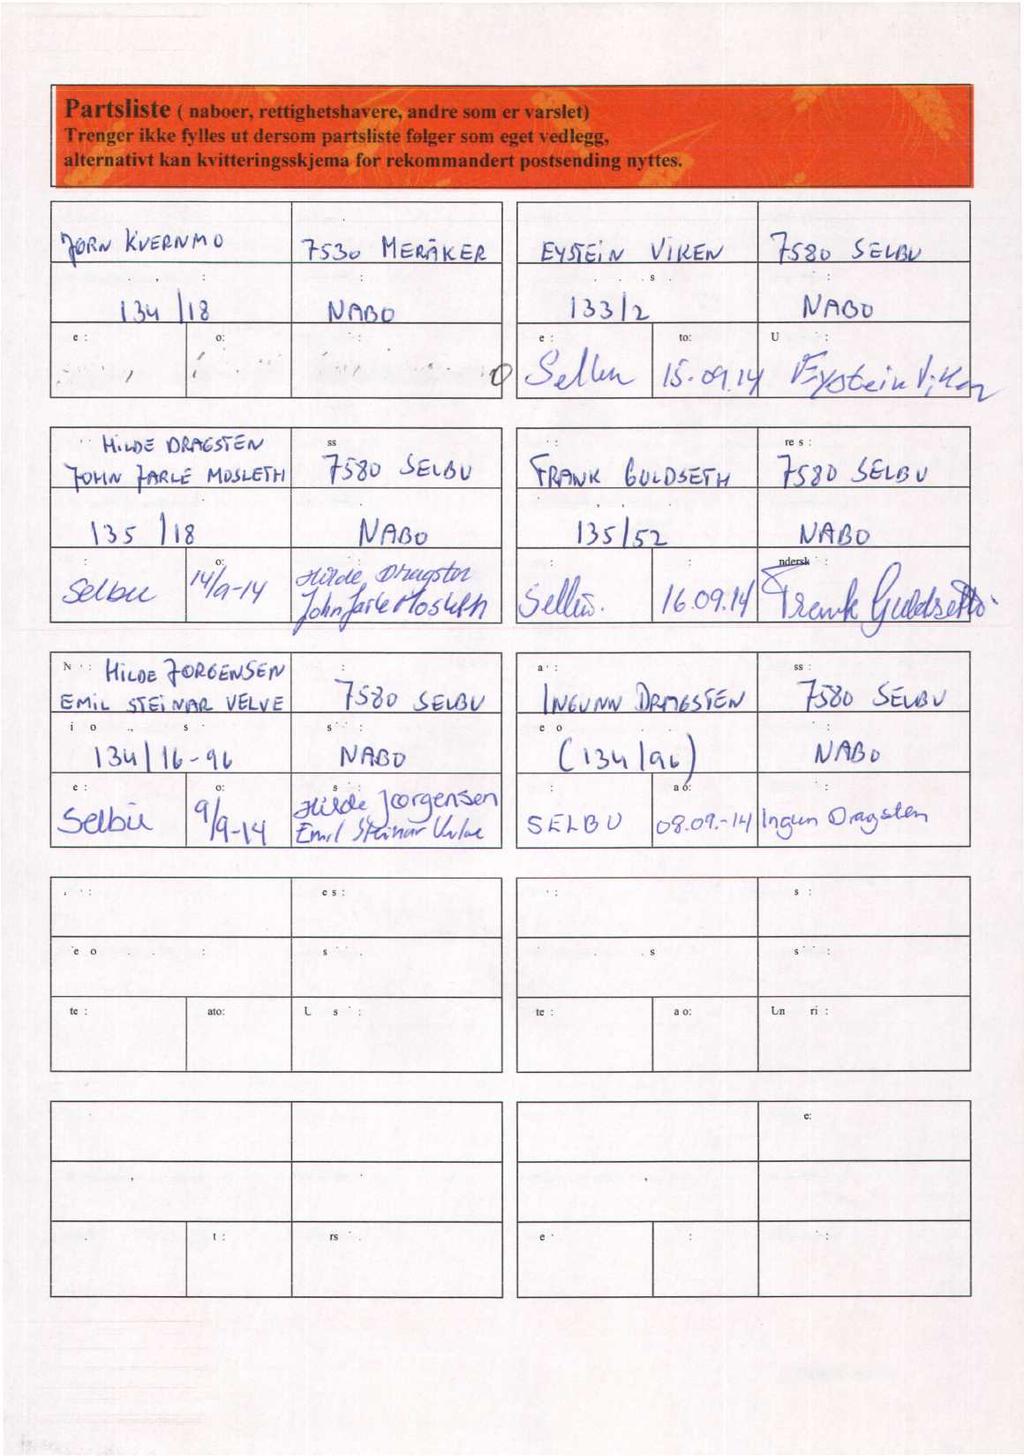 Partsliste ( naboer, rettighetshavere, andre som er varslet)
Trenger ikke fylles ut dersom partsliste følger som eget vedlegg,
alternativt kan kvitteringsskjema for rekommandert postsending nyttes.
JØRN KVERNMO 7530 MERÅKER
134/18 NABO
EYSTEIN VIKEN 7580 SELBU
133/2 NABO
to:
Selbu 15.09.14 Eystein Viken
HILDE DRAGSTEN
JOHN JARLE MOSLETH 7580 SELBU
135/18 NABO
Selbu 14/9-14 Hilde Dragsten
John Jarle Mosleth
FRANK GULDSETH 7580 SELBU
135/52 NABO
ndersk
Selbu. 16.09.14 Frank Guldseth
HILDE JORGENSEN
EMIL STEINAR VELVE 7580 SELBU
134/16-96 NABO
Selbu 9/9-14 Hilde Jorgensen
Emil Steinar Velve
INGUNN DRAGSTEN 7580 SELBU
(134/96) NABO
SELBU 08.09.-14 Ingun Dragsten
te : ato:
te : a o: